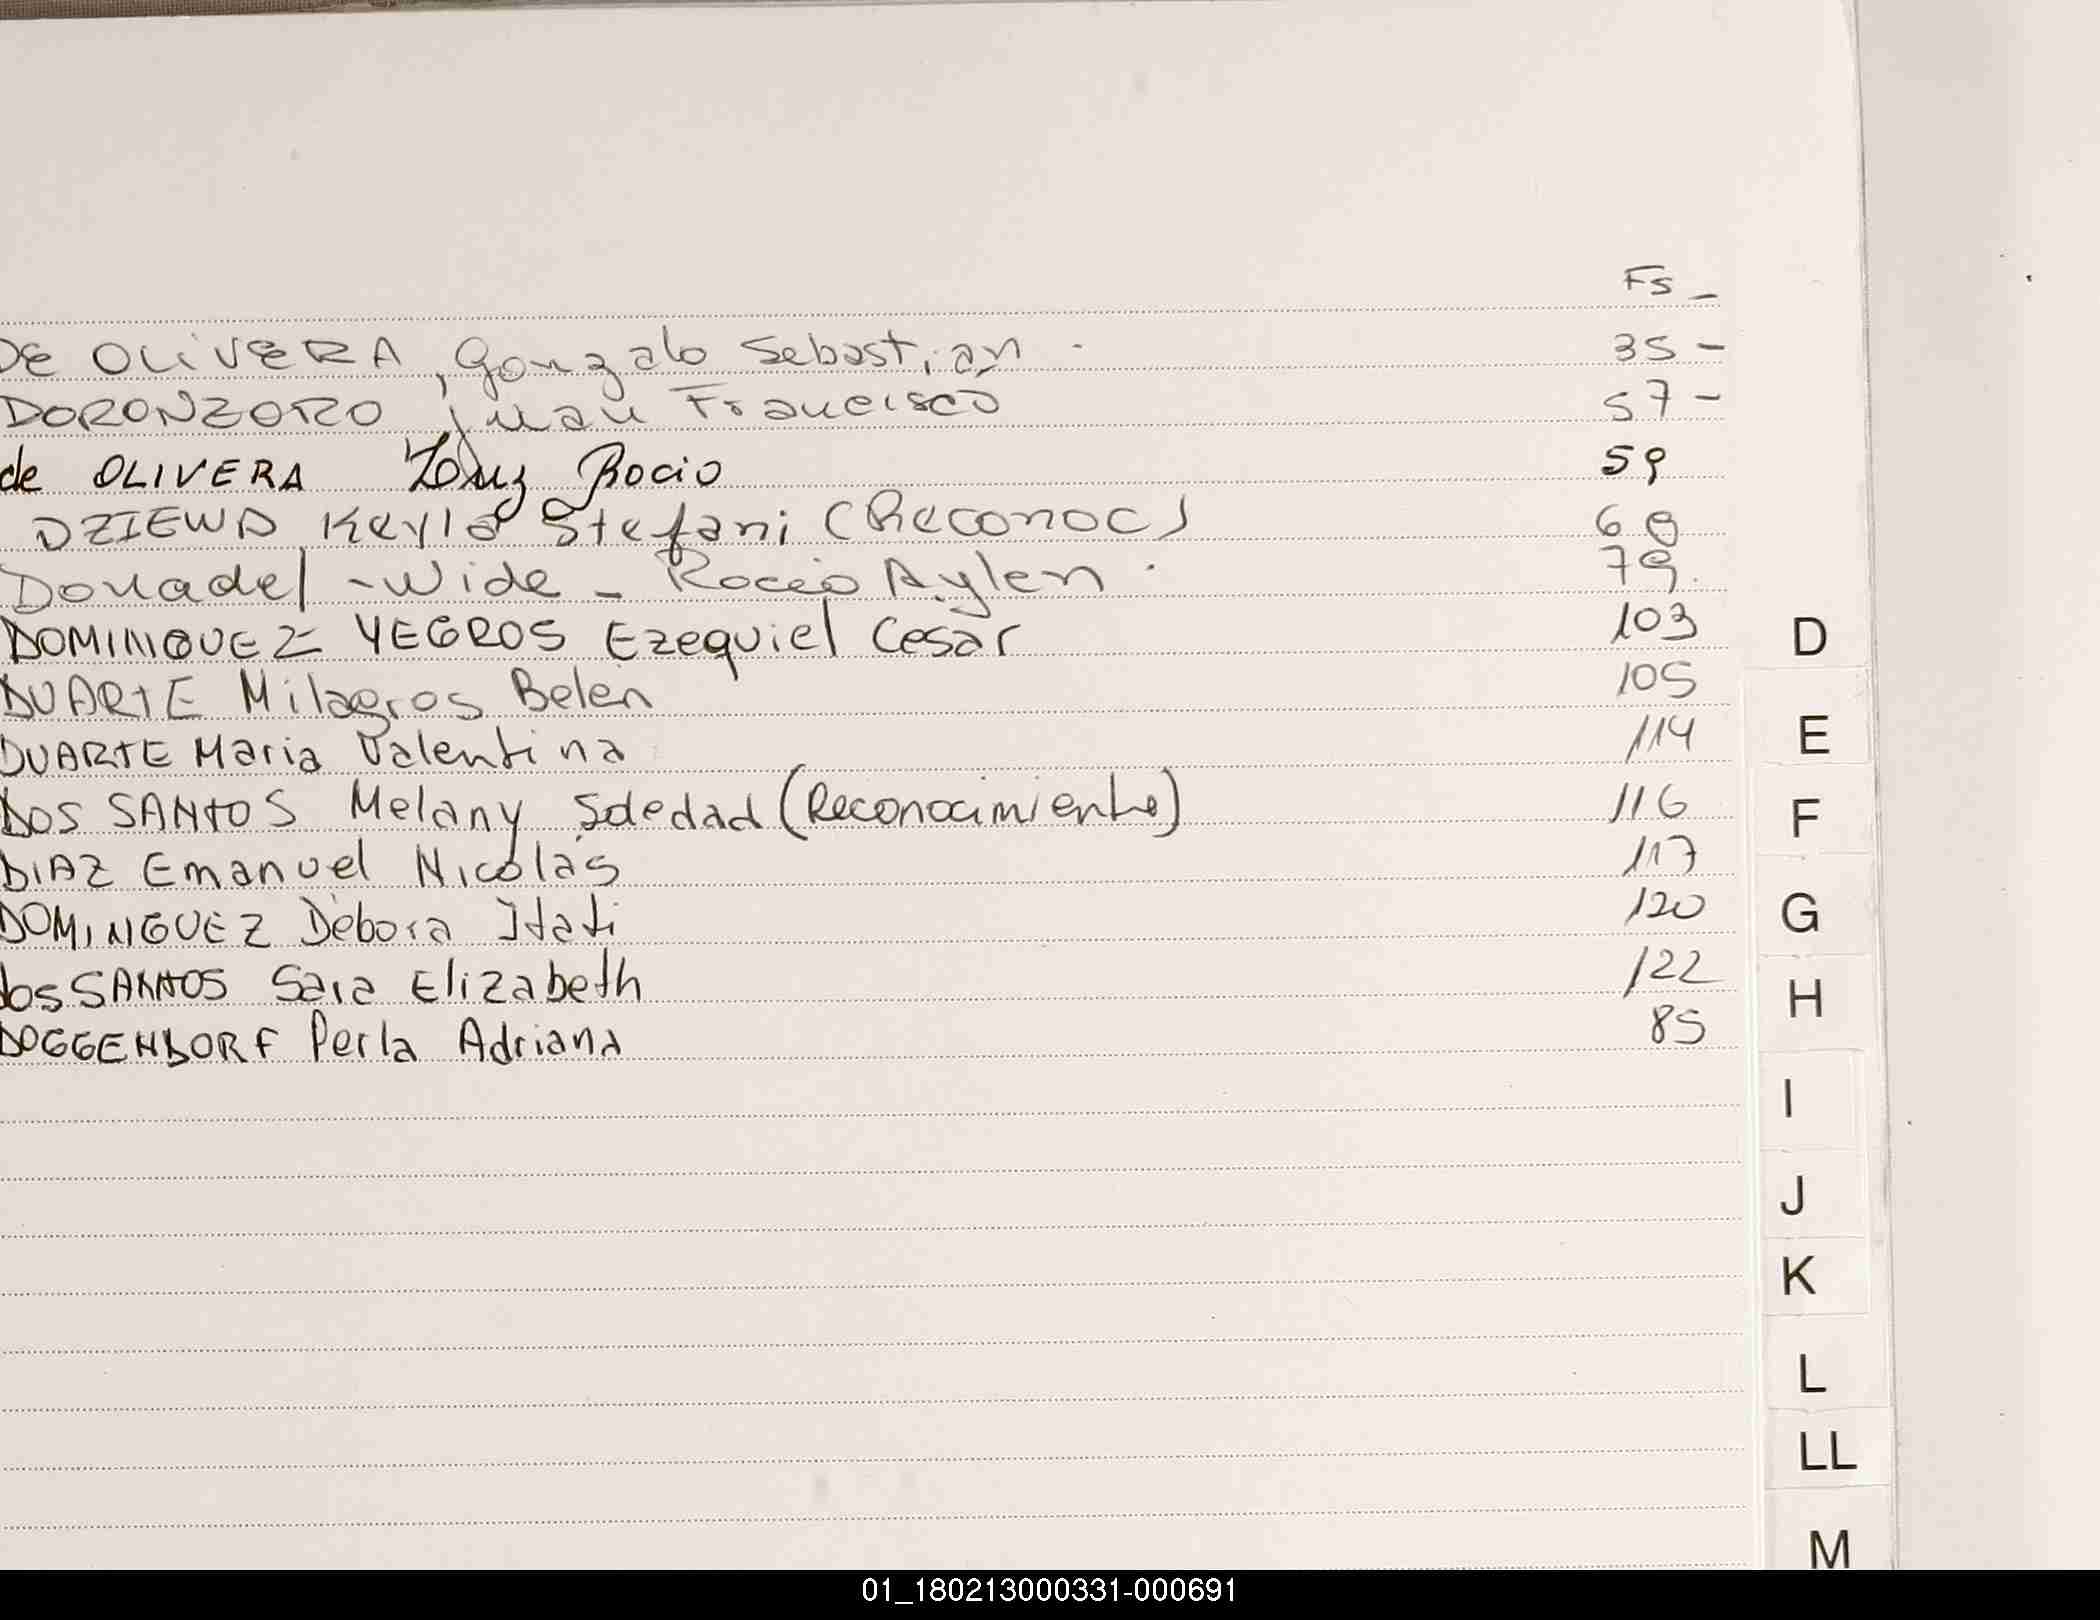 Fs -
DE OLIVERA, Gonzalo Sebastian. 35 -
DORONZORO Juan Francisco 57 -
de OLIVERA Rocio 59
DZIEWA Keyla Stefani (Reconoc) 69
Donadel - Wide - Rocio Aylen. 79.
DOMINGUEZ YEGROS Ezequiel Cesar 103
DUARTE Milagros Belen 105
DUARTE Maria Valentina 114
DOS SANTOS Melany Soledad (Reconocimiento) 116
DIAZ Emanuel Nicolás 117
DOMINGUEZ Débora Itati 120
dos SANTOS Sara Elizabeth 122
DOGGENDORF Perla Adriana 85
D
E
F
G
H
I
J
K
L
LL
M
01_180213000331-000691